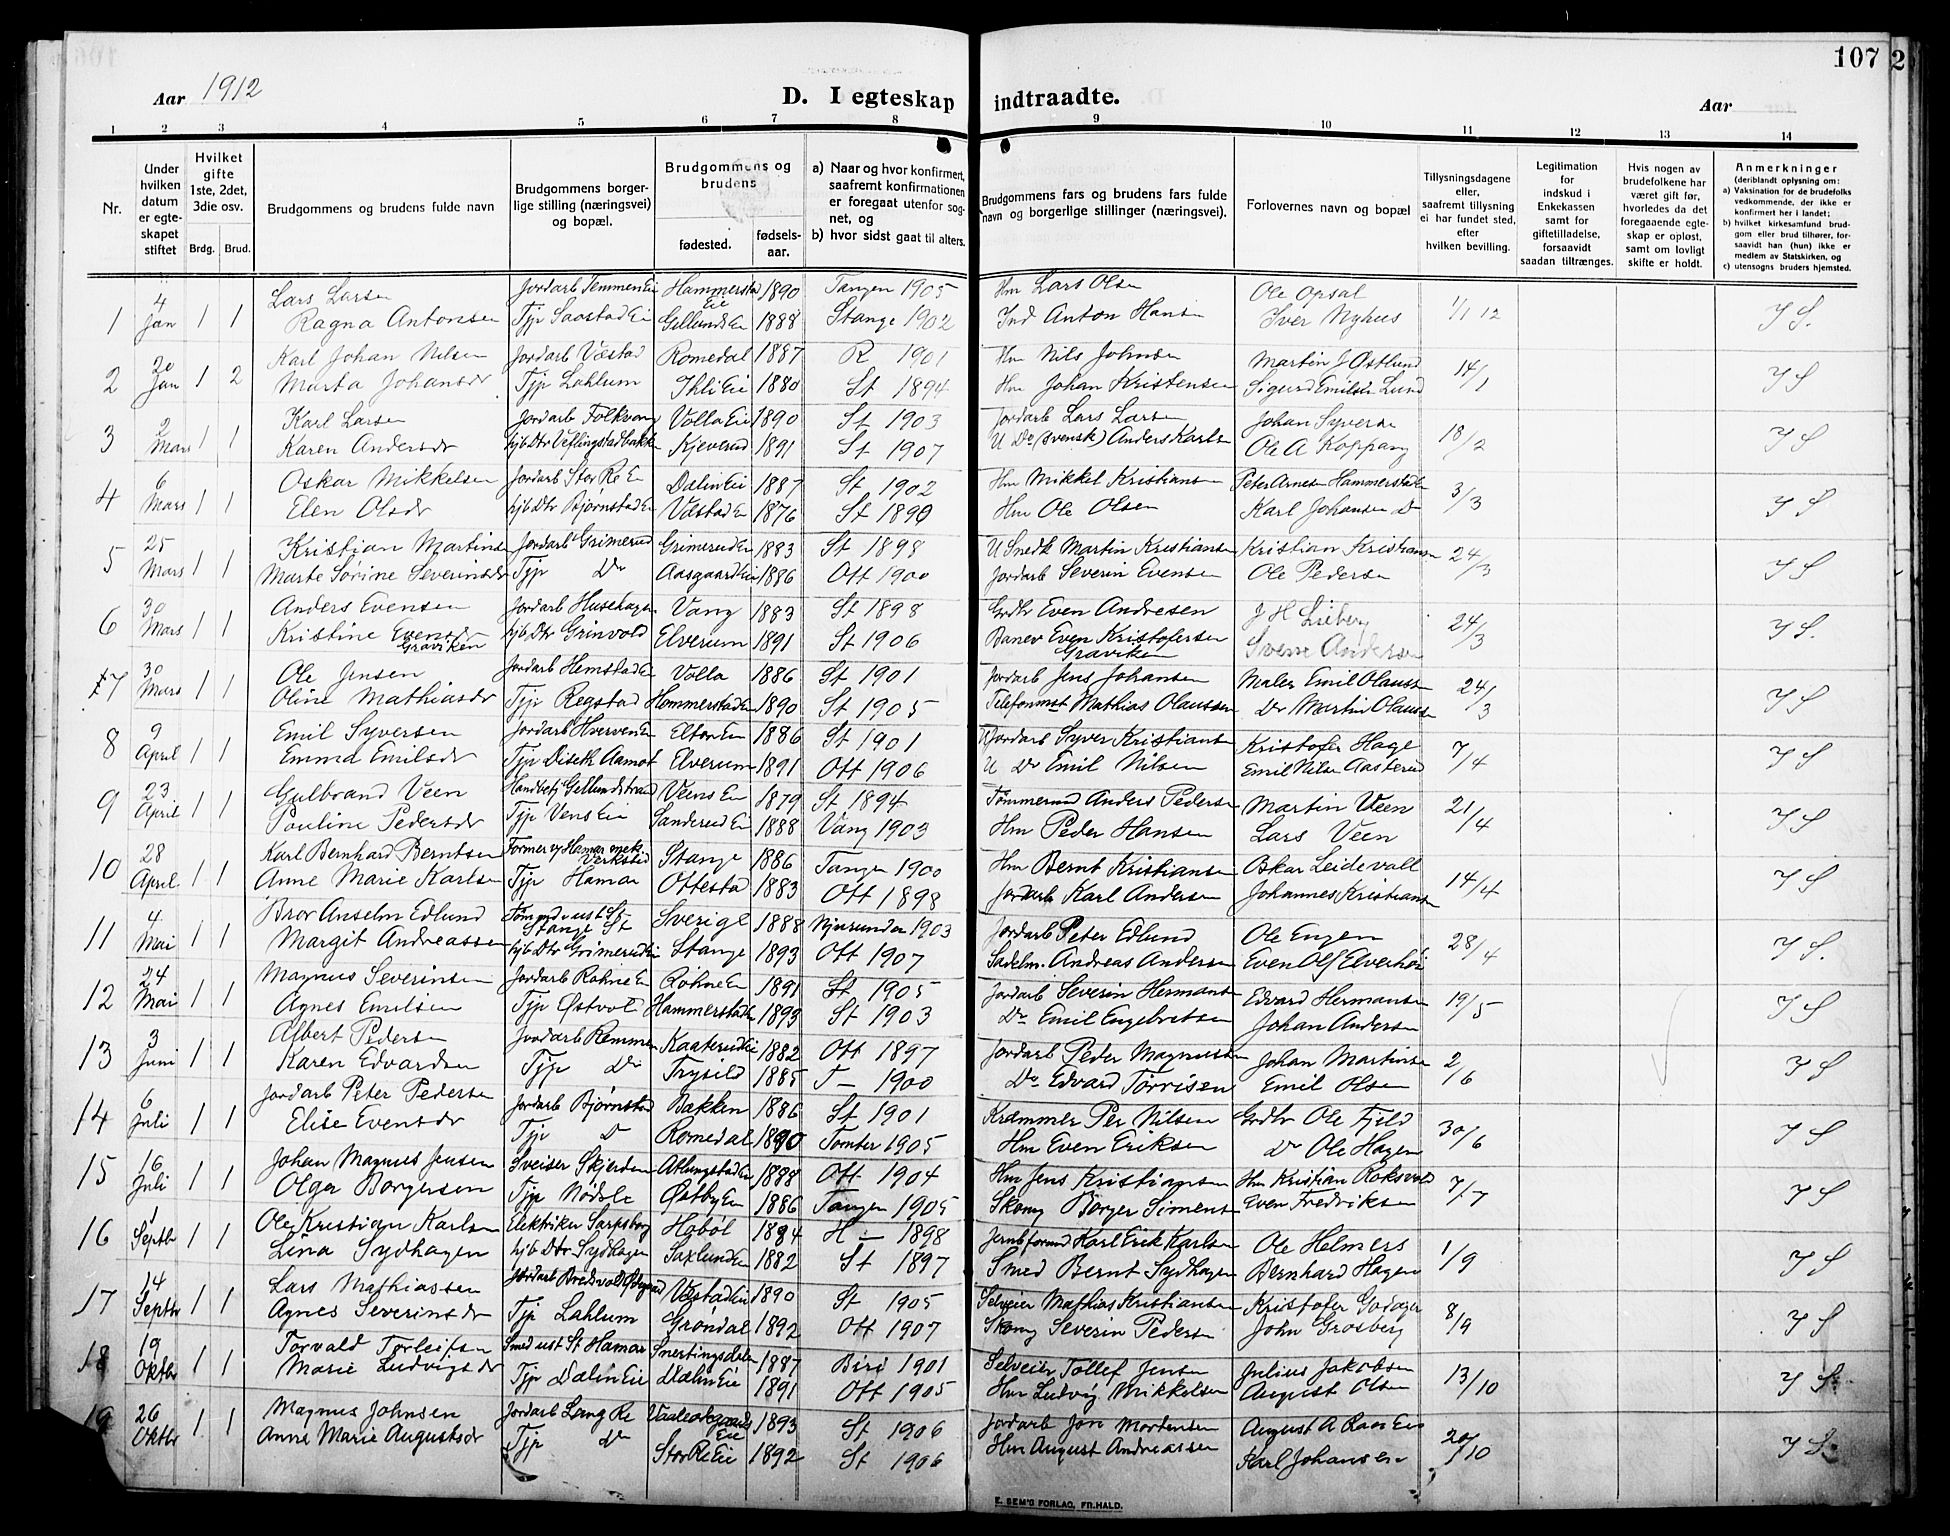 107
2
Aar 1912
D. I egteskap indtraadte.
Aar
1 2 3 4 5 6 7 8 9 10 11 12 13 14
Nr.
Under hvilken datum er egte-skapet stiftet
Hvilket gifte 1ste, 2det, 3die osv.
Brdg. Brud.
Brudgommens og brudens fulde navn
Brudgommens borger-lige stilling (næringsvei) og bopæl.
Brudgommens og brudens
fødested. fødsels-aar.
a) Naar og hvor konfirmert, saafremt konfirmationen er foregaat utenfor sog-net, og
b) hvor sidst gaat til alters.
Brudgommens fars og brudens fars fulde navn og borgerlige stillinger (næringsvei).
Forlovernes navn og bopæl
Tillysningsdagene eller, saafremt tillysning ei har fundet sted, efter hvilken bevilling.
Legitimation for indskud i Enkekassen samt for giftetilladelse, forsaavidt saadan tiltrænges.
Hvis nogen av brudefolkene har været gift før, hvorledes da det foregaaende egte-skap er opløst, samt om lovligt skifte er holdt.
Anmerkninger
(deriblandt oplysning om:
a) Vaksination for de brudefolks vedkommende, der ikke er konfirmert her i landet;
b) hvilket kirkesamfund brud-gom eller brud tilhører, for-saavidt han (hun) ikke er medlem av Statskirken, og
c) utensogns bruders hjemsted.
1 4 Jan 1 1 Lars Larsen Jordarb Temmen Eie Hammerstad Eie 1890 Tangen 1905 Hm Lars Olsen Ole Opsal 1/1 12 I S.
Ragna Antonsen Tjp Saastad Ei Gillunds Ei 1888 Stange 1902 Ind Anton Hansen Iver Nyhus
2 20 Jan 1 2 Karl Johan Nilsen Jordarb Væstad Romedal 1887 R 1901 Hm Nils Johnsen Martin J Østlund 14/1 I S
Marta Johansdr Tjp Lahlum Ihli Eie 1880 St 1894 Hm Johan Kristensen Sigurd Emilsen Lund
3 2 Mars 1 1 Karl Larsen Jordarb Folkvang Volla Ei 1890 St 1903 Jordarb Lars Larsen Johan Syversen 18/2 I S
Karen Andersdr hjb Dtr Veflingstadbakke Kjeverud 1891 St 1907 U Do (svensk) Anders Karlsen Ole A Koppang
4 6 Mars 1 1 Oskar Mikkelsen Jordarb Stor Re E Dalin Ei 1887 St 1902 Hm Mikkel Kristiansen Peter Arnesen Hammerstad Ei 3/3 I S
Elen Olsdr hjb Dtr Bjørnstad Ei Væstad Ei 1876 St 1890 Hm Ole Olsen Karl Johansen Do
5 25 Mars 1 1 Kristian Martinsen Jordarb Grimerud Grimerud Ei 1883 St 1898 U Snedk Martin Kristiansen Kristian Kristiansen 24/3 I S
Marte Sørine Severinsdr Tjp Do Aasgaard Ei 1886 Ott 1900 Jordarb Severin Evensen Ole Pedersen
6 30 Mars 1 1 Anders Evensen Jordarb Husehagen Vang 1883 St 1898 Grdbr Even Andresen J H Lieberg 24/3 I S.
Kristine Evensdr Graviken hjb Dtr Grinvold Elverum 1891 St 1906 Banev Even Kristofersen Graviken Svenn Andersen
7 30 Mars 1 1 Ole Jensen Jordarb Hemstad Ei Volla 1886 St 1901 Jordarb Jens Johansen Maler Emil Olaussen 24/3 I S
Oline Mathiasdr Tjp Regstad Hammerstad Ei 1890 St 1905 Telefonmst Mathias Olaussen Do Martin Olaussen
8 9 April 1 1 Emil Syversen Jordarb Hverven Ei Elton Ei 1886 St 1901 U Jordarb Syver Kristiansen Kristofer Hage 7/4 I S
Emma Emilsdr Tjp Diseth Aamot Elverum 1891 Ott 1906 U Do Emil Nilsen Emil Nilsen Aasterud
9 23 April 1 1 Gulbrand Veen Handbetj Gellundstrand Veens Ei 1879 St 1894 Tømmermd Anders Pedersen Martin Veen 21/4 I S
Pouline Pedersdr Tjp Vens Eie Sanderud Ei 1888 Vang 1903 Hm Peder Hansen Lars Veen
10 28 April 1 1 Karl Bernhard Berntsen Former v/ Hamar mek. Verksted Stange 1886 Tangen 1900 Hm Bernt Kristiansen Oskar Leidevall 14/4 I S
Anne Marie Karlsen Tjp Hamar Ottestad 1883 Ott 1898 Jordarb Karl Andersen Johannes Kristiansen
11 4 Mai 1 1 Bror Anselm Edlund Stange St Sverige 1888 Njurunda 1903 Jordarb Peter Edlund Ole Engen 28/4 I S.
Margit Andreassen hjb Dtr Grimerud Ei Stange 1893 Ott 1907 Sadelm. Andreas Andersen Even Olf Elverhøi
12 24 Mai 1 1 Magnus Severinsen Jordarb Røhne Ei Røhne Ei 1891 St 1905 Jordarb Severin Hermansen Edvard Hermansen 19/5 I S
Agnes Emilsen Tjp Østvol Hammerstad Ei 1893 St 1903 Do Emil Engebretsen Johan Andersen
13 3 Juni 1 1 Albert Pedersen Jordarb Remmen Kaaterud Ei 1882 Ott 1897 Jordarb Peder Magnussen Johan Martinsen 2/6 I S
Karen Edvardsen Tjp Do Trysild 1885 T — 1900 Do Edvard Tørrisen Emil Olsen
14 6 Juli 1 1 Jordarb Peter Pedersen Jordarb Bjørnstad Bakken 1886 St 1901 Kræmmer Per Nilsen Grdbr Ole Fjeld 30/6 I S
Elise Evensdr Tjp D Romedal 1890 Tomter 1905 Hm Even Eriksen Do Ole Hagen
15 16 Juli 1 1 Johan Magnus Jensen Sveiser Skjerden Atlungstad Ei 1888 Ott 1904 Hm Jens Kristiansen Hm Kristian Roksvold 7/7 I S
Olga Borgersen Tjp Nødsle Østby Ei 1886 Tangen 1905 Skomg Borger Simensen Even Fredriksen
16 1 Septbr 1 1 Ole Kristian Karlsen Elektriker Sarpsborg Hobøl 1884 H — 1898 Jernbformd Karl Erik Karlsen Ole Helmers 1/9 I S
Lina Sydhagen hjb Dtr Sydhagen Saxlund Ei 1882 St 1897 Smed Bernt Sydhagen Bernhard Hagen
17 14 Septbr 1 1 Lars Mathiassen Jordarb Bredsvold Væstad Ei 1890 St 1905 Selveier Mathias Kristiansen Kristofer Godager 8/9 I S
Agnes Severinsdr Tjp Lahlum Grøndal 1892 Ott 1907 Skomg Severin Pedersen John Grosberg
18 19 Oktbr 1 1 Torvald Torleifsen Smed ust St Hamar Snertingsdalen 1887 Biri 1901 Selveier Tollef Jensen Julius Jakobsen 13/10 I S
Marie Ludvigsdr Tjp Dalin Eie Dalin Eie 1891 Ott 1905 Hm Ludvig Mikkelsen August Olsen
19 26 Oktbr 1 1 Magnus Johnsen Jordarb Lang Re Eie 1893 St 1906 Jordarb Jon Mortensen August A Raas Eie 20/10 I S
Anne Marie Augustsdr Tjp do Stor Re Eie 1892 St 1906 Hm August Andreassen Karl Johansen
E. SEM'S FORLAG, FR.HALD.